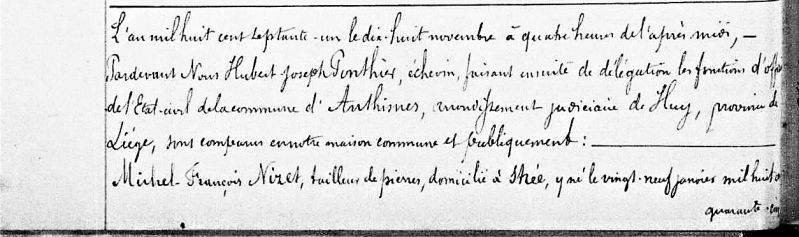 L'an mil huit cent septante-un le dix-huit novembre à quatre heures de l'après midi, —
Pardevant Nous Hubert Joseph Ponthier, échevin, faisant ensuite de délégation les fonctions d'offi
de l'Etat-civil de la commune d'Anthisnes, arrondissement judiciaire de Huy, province de
Liége, sont comparus en notre maison commune et publiquement :
Michel-François Nizet, tailleur de pierres, domicilié à Strée, y né le vingt-neuf janvier mil huit c
quarante-